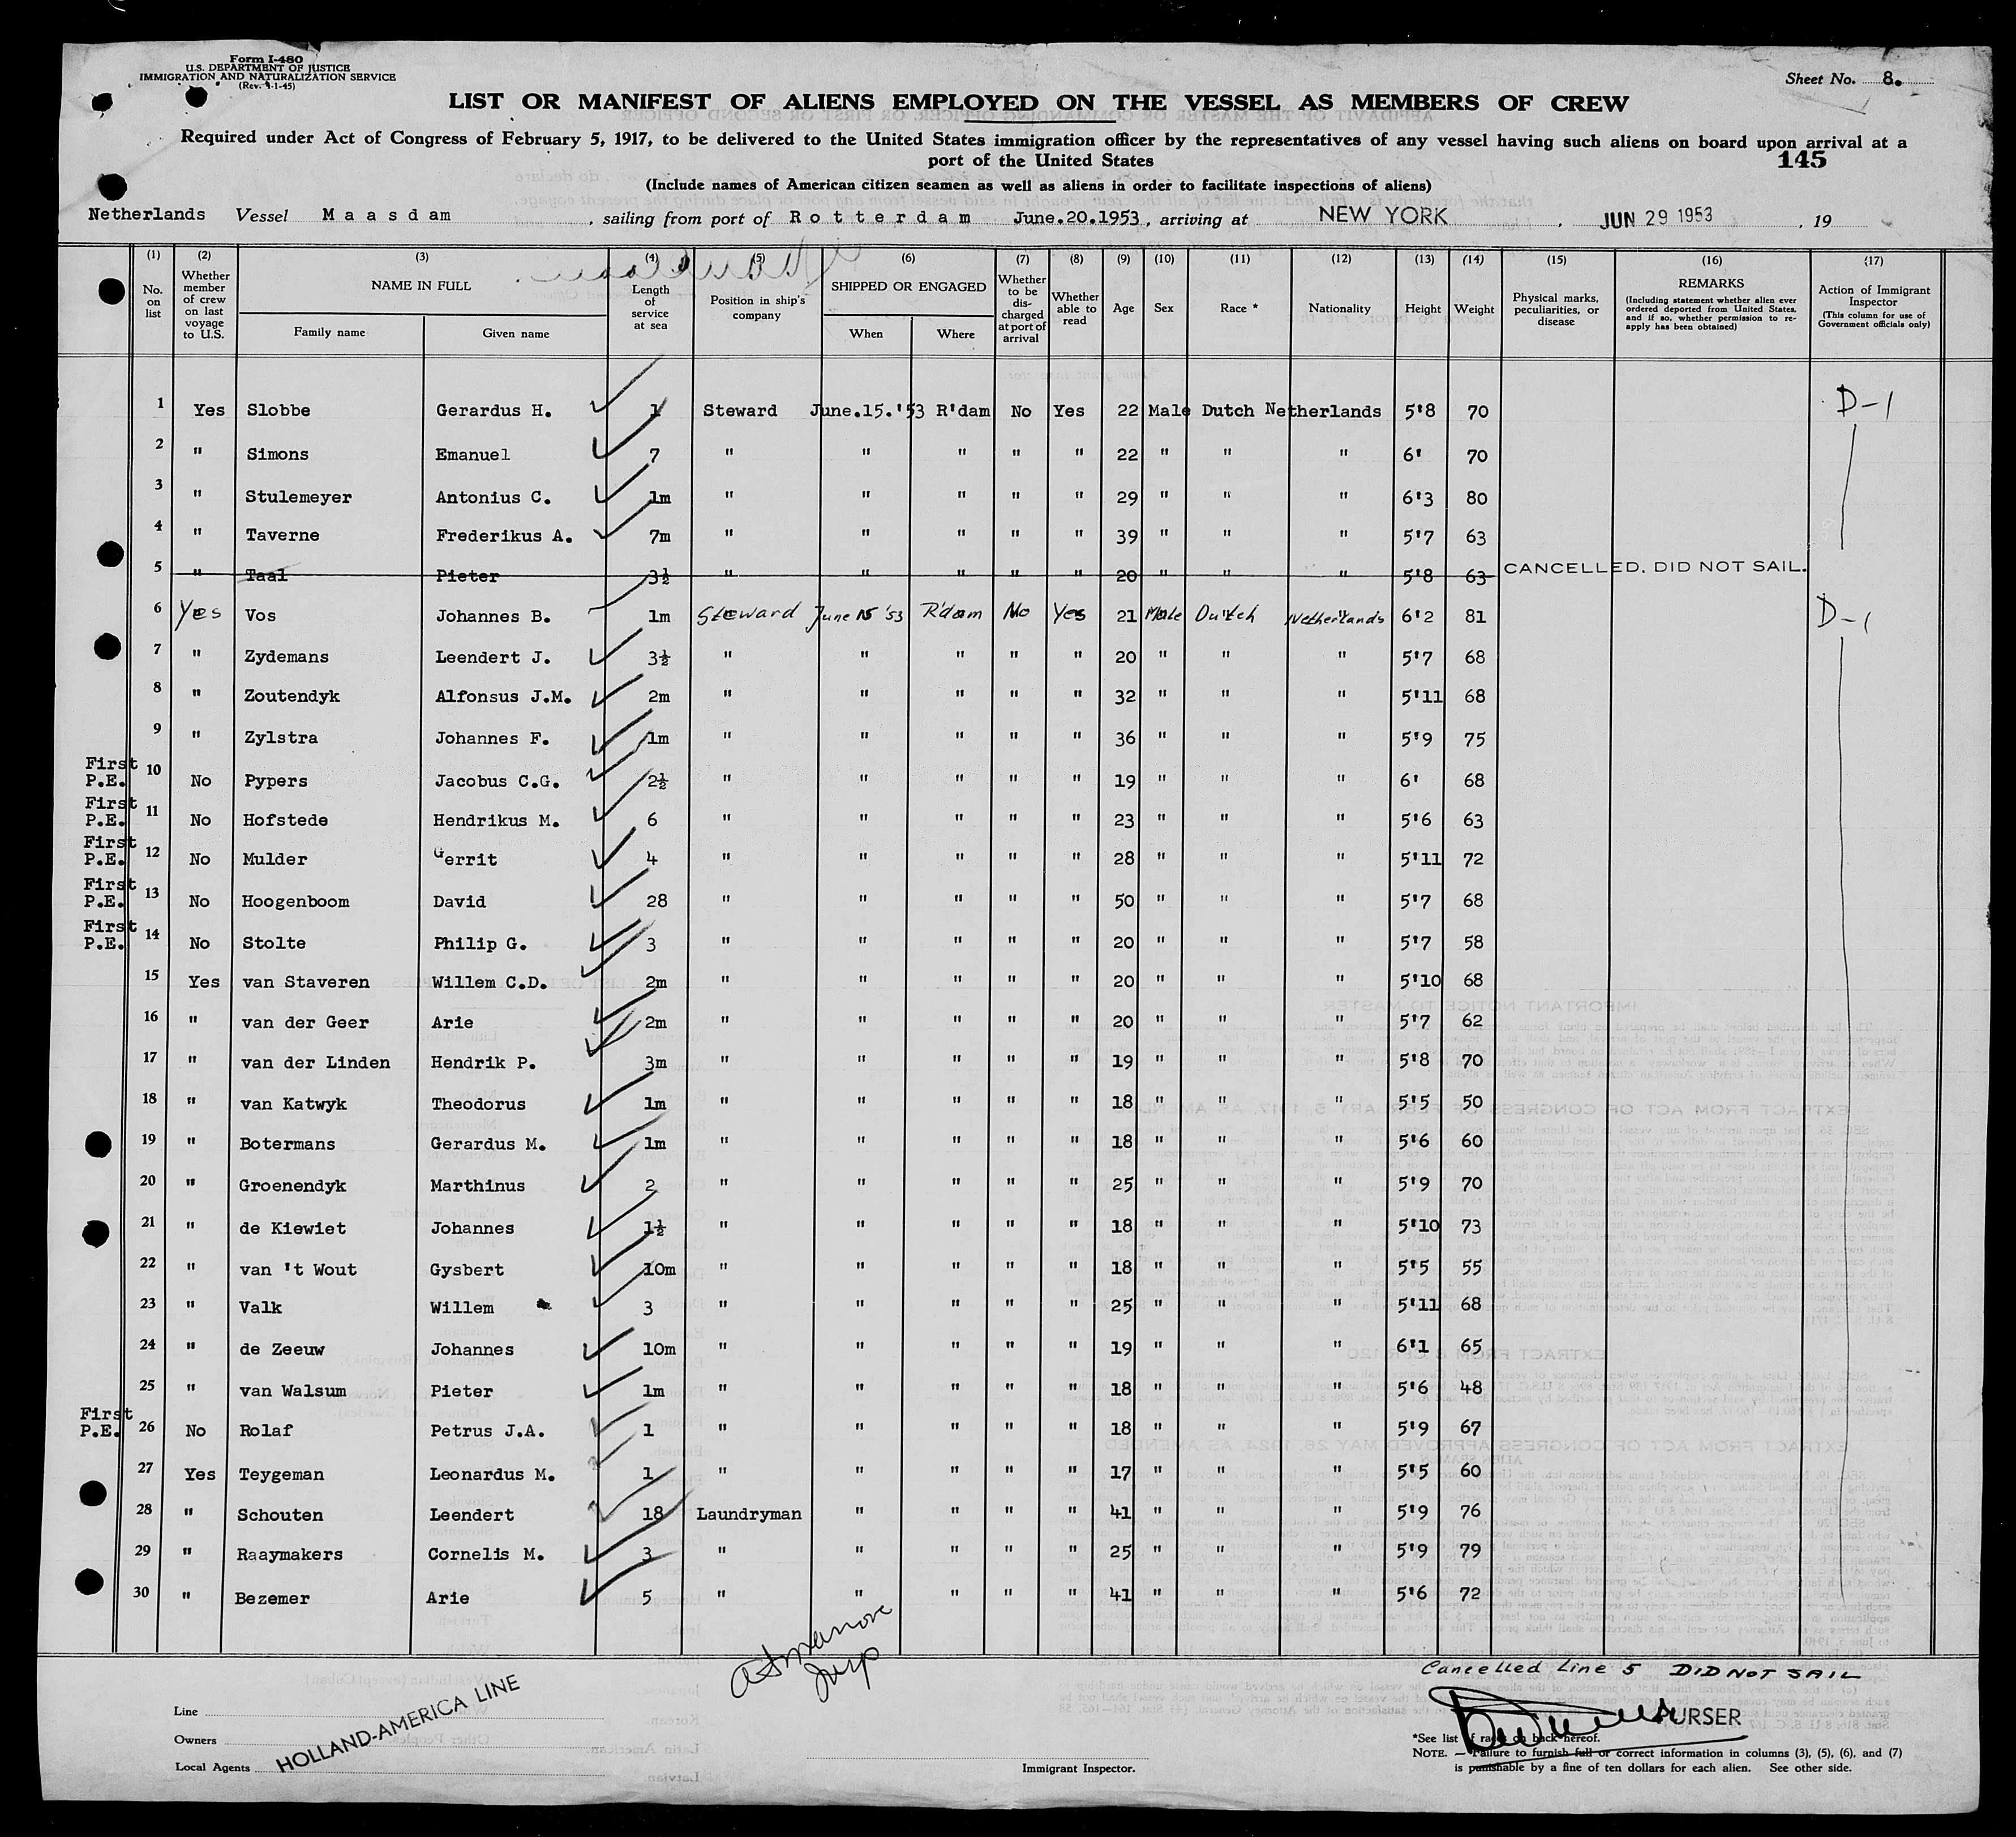 Form I-480
U.S. DEPARTMENT OF JUSTICE
IMMIGRATION AND NATURALIZATION SERVICE
(Rev. 4-1-45)
Sheet No. 8.
LIST OR MANIFEST OF ALIENS EMPLOYED ON THE VESSEL AS MEMBERS OF CREW
Required under Act of Congress of February 5, 1917, to be delivered to the United States immigration officer by the representatives of any vessel having such aliens on board upon arrival at a
port of the United States
145
(Include names of American citizen seamen as well as aliens in order to facilitate inspections of aliens)
Netherlands Vessel Maasdam, sailing from port of Rotterdam June.20.1953, arriving at NEW YORK, JUN 29 1953, 19
(1) No. on list
(2) Whether member of crew on last voyage to U.S.
(3) NAME IN FULL
Family name Given name
(4) Length of service at sea
(5) Position in ship's company
(6) SHIPPED OR ENGAGED
When Where
(7) Whether to be discharged at port of arrival
(8) Whether able to read
(9) Age
(10) Sex
(11) Race *
(12) Nationality
(13) Height
(14) Weight
(15) Physical marks, peculiarities, or disease
(16) REMARKS
(Including statement whether alien ever ordered deported from United States, and if so, whether permission to reapply has been obtained)
(17) Action of Immigrant Inspector
(This column for use of Government officials only)
1 Yes Slobbe Gerardus H. 1 Steward June.15.'53 R'dam No Yes 22 Male Dutch Netherlands 5'8 70 D-1
2 " Simons Emanuel 7 " " " " " 22 " " " 6' 70
3 " Stulemeyer Antonius C. 1m " " " " " 29 " " " 6'3 80
4 " Taverne Frederikus A. 7m " " " " " 39 " " " 5'7 63
5 " Taal Pieter 3½ " " " " " 20 " " " 5'8 63 CANCELLED. DID NOT SAIL.
6 Yes Vos Johannes B. 1m Steward June 15 '53 R'dam No Yes 21 Male Dutch Netherlands 6'2 81 D-1
7 " Zydemans Leendert J. 3½ " " " " " 20 " " " 5'7 68
8 " Zoutendyk Alfonsus J.M. 2m " " " " " 32 " " " 5'11 68
9 " Zylstra Johannes F. 1m " " " " " 36 " " " 5'9 75
First P.E. 10 No Pypers Jacobus C.G. 2½ " " " " " 19 " " " 6' 68
First P.E. 11 No Hofstede Hendrikus M. 6 " " " " " 23 " " " 5'6 63
First P.E. 12 No Mulder Gerrit 4 " " " " " 28 " " " 5'11 72
First P.E. 13 No Hoogenboom David 28 " " " " " 50 " " " 5'7 68
First P.E. 14 No Stolte Philip G. 3 " " " " " 20 " " " 5'7 58
15 Yes van Staveren Willem C.D. 2m " " " " " 20 " " " 5'10 68
16 " van der Geer Arie 2m " " " " " 20 " " " 5'7 62
17 " van der Linden Hendrik P. 3m " " " " " 19 " " " 5'8 70
18 " van Katwyk Theodorus 1m " " " " " 18 " " " 5'5 50
19 " Botermans Gerardus M. 1m " " " " " 18 " " " 5'6 60
20 " Groenendyk Marthinus 2 " " " " " 25 " " " 5'9 70
21 " de Kiewiet Johannes 1½ " " " " " 18 " " " 5'10 73
22 " van 't Wout Gysbert 10m " " " " " 18 " " " 5'5 55
23 " Valk Willem 3 " " " " " 25 " " " 5'11 68
24 " de Zeeuw Johannes 10m " " " " " 19 " " " 6'1 65
25 " van Walsum Pieter 1m " " " " " 18 " " " 5'6 48
First P.E. 26 No Rolaf Petrus J.A. 1 " " " " " 18 " " " 5'9 67
27 Yes Teygeman Leonardus M. 1 " " " " " 17 " " " 5'5 60
28 " Schouten Leendert 18 Laundryman " " " " 41 " " " 5'9 76
29 " Raaymakers Cornelis M. 3 " " " " " 25 " " " 5'9 79
30 " Bezemer Arie 5 " " " " " 41 " " " 5'6 72
Cancelled Line 5 DID NOT SAIL
Line
Owners
Local Agents
HOLLAND-AMERICA LINE
Immigrant Inspector.
PURSER
*See list of races on back hereof.
NOTE. — Failure to furnish full or correct information in columns (3), (5), (6), and (7)
is punishable by a fine of ten dollars for each alien. See other side.